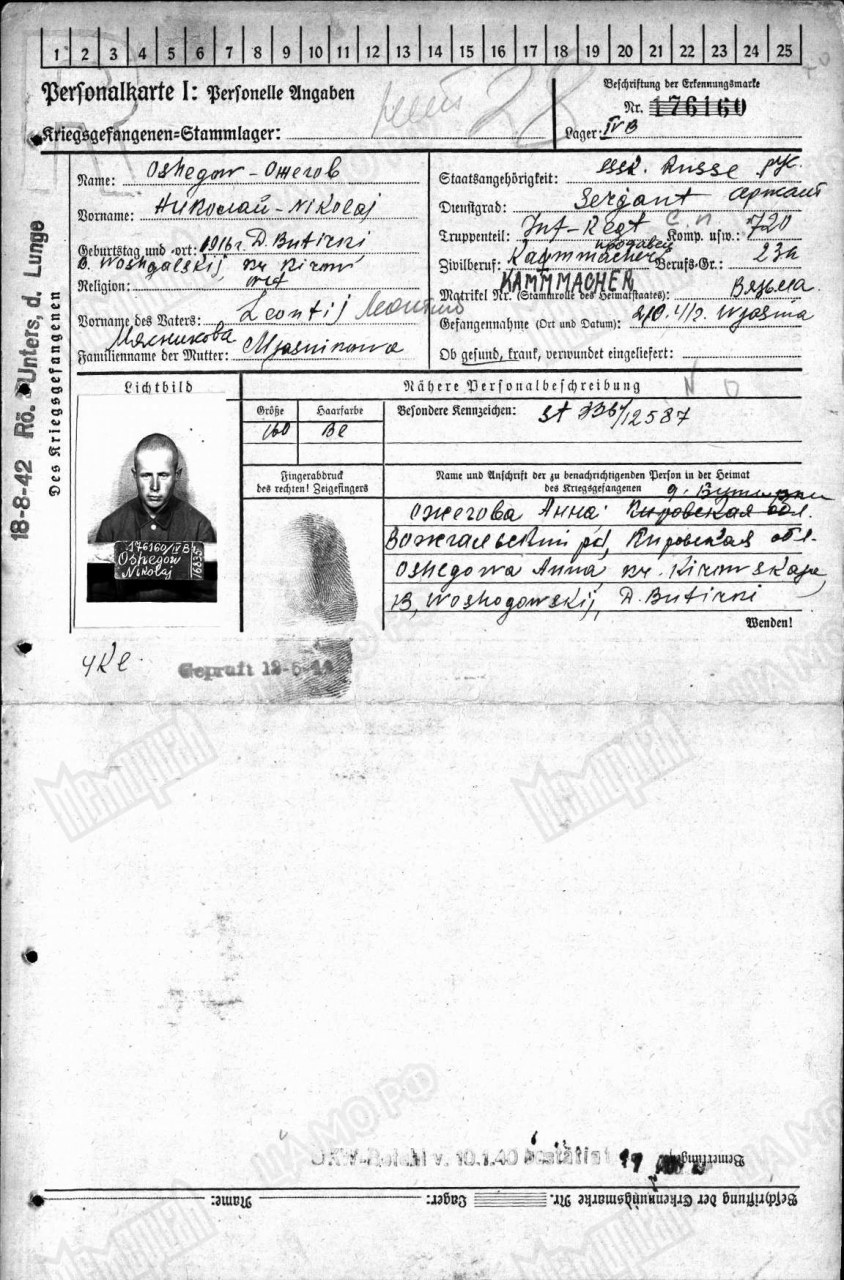 1 2 3 4 5 6 7 8 9 10 11 12 13 14 15 16 17 18 19 20 21 22 23 24 25
Personalkarte I: Personelle Angaben
Beschriftung der Erkennungsmarke
28
Nr. 176160
Kriegsgefangenen=Stammlager:
Lager: IV B
Des Kriegsgefangenen
18-8-42 Rö. Unters, d. Lunge
Name: Oshegow - Ожегов
Vorname: Николай - Nikolaj
Geburtstag und -ort: 1916г. D. Butirki
B. Woshgalskij, Kr. Kirow
Religion:
Vorname des Vaters: Leontij
Мясникова
Familienname der Mutter: Mjasnikowa
Staatsangehörigkeit: Russe
Dienstgrad: Sergant Сержант
Truppenteil: Inf-Regt С. п Komp. usw.: 720
Zivilberuf: Kammmacher Berufs-Gr.: 23a
KAMMMACHER
Matrikel Nr. (Stammrolle des Heimatstaates): Вязьма.
Gefangennahme (Ort und Datum): Wjasma
Ob gesund, krank, verwundet eingeliefert:
Lichtbild
Nähere Personalbeschreibung
Größe Haarfarbe Besondere Kennzeichen:
160 Bl
176160/IV B
Oshegow
Nikolaj
Fingerabdruck
des rechten! Zeigefingers
Name und Anschrift der zu benachrichtigenden Person in der Heimat
des Kriegsgefangenen
Ожегова Анна Кировская обл.
Вожгальский Кировская обл.
Oshegowa Anna Kr. Kirowskaja,
B, Woshogowskij, D. Butirki
Wenden!
Geprüft
Мемориал
ЦАМО РФ
Bemerkungen:
Beschriftung der Erkennungsmarke Nr. Lager: Name: